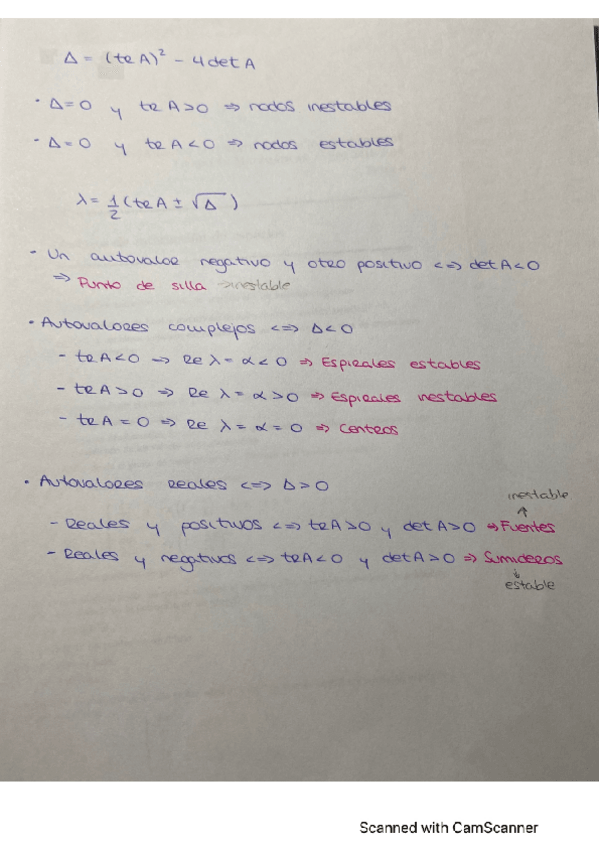 Δ = (tr A)² - 4 det A
· Δ = 0 y tr A > 0 => nodos inestables
- Δ = 0 y tr A < 0 => nodos estables
λ = 1/2 (tr A ± √Δ )
- Un autovalor negativo y otro positivo <=> det A < 0
=> Punto de silla -> inestable
· Autovalores complejos <=> Δ < 0
- tr A < 0 => Re λ = α < 0 => Espirales estables
- tr A > 0 => Re λ = α > 0 => Espirales inestables
- tr A = 0 => Re λ = α = 0 => Centros
· Autovalores reales <=> Δ > 0
inestable
↑
- Reales y positivos <=> tr A > 0 y det A > 0 => Fuentes
- Reales y negativos <=> tr A < 0 y det A > 0 => Sumideros
↓
estable
Scanned with CamScanner